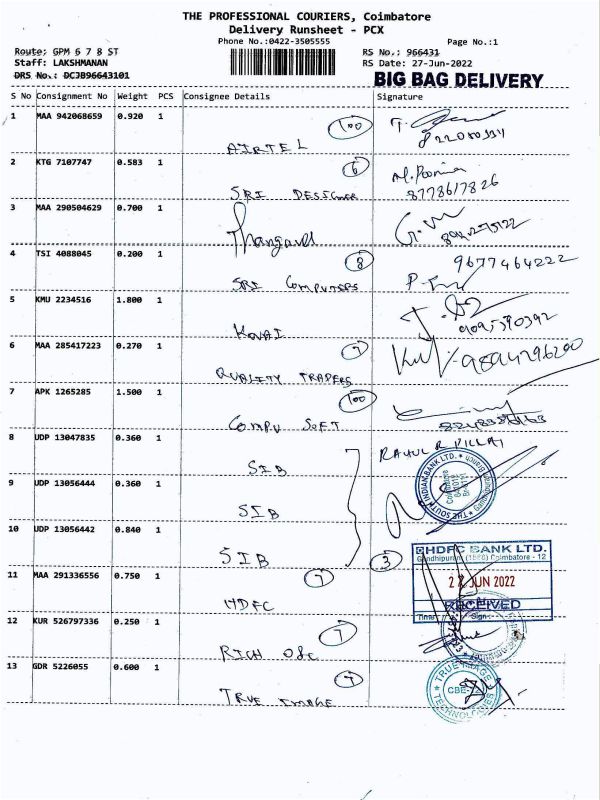 THE PROFESSIONAL COURIERS, Coimbatore
Delivery Runsheet - PCX
Phone No.:0422-3505555 Page No.:1
Route: GPM 6 7 8 ST RS No.: 966431
Staff: LAKSHMANAN RS Date: 27-Jun-2022
DRS No.: DCJB96643101 BIG BAG DELIVERY
S No Consignment No Weight PCS Consignee Details Signature
1 MAA 942068659 0.920 1 100
AIRTEL
2 KTG 7107747 0.583 1 6 M. Poornima
SRI DESIGNER 8778617826
3 MAA 290504629 0.700 1
Thangavel
4 TSI 4088045 0.200 1 8 9677464222
SRI COMPUTERS
5 KMU 2234516 1.800 1
KOVAI 9095390392
6 MAA 285417223 0.270 1 7 9894296200
QUALITY TRADERS
7 APK 1265285 1.500 1 100
COMPU SOFT
8 UDP 13047835 0.360 1 RAHUL R PILLAI
SIB
THE SOUTH INDIAN BANK LTD.
9 UDP 13056444 0.360 1
SIB
10 UDP 13056442 0.840 1
SIB 3
HDFC BANK LTD.
Gandhipuram (1580) Coimbatore - 12
11 MAA 291336556 0.750 1 7 JUN 2022
HDFC RECEIVED
Time: Sign:
12 KUR 526797336 0.250 1 7
RICH
13 GDR 5226055 0.600 1 7
TRUE IMAGE
TRUE IMAGE
CBE-12
TECHNOLOGIES